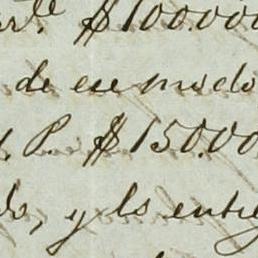 $100.000
de ese modo
P. $150.00
do, y lo entre